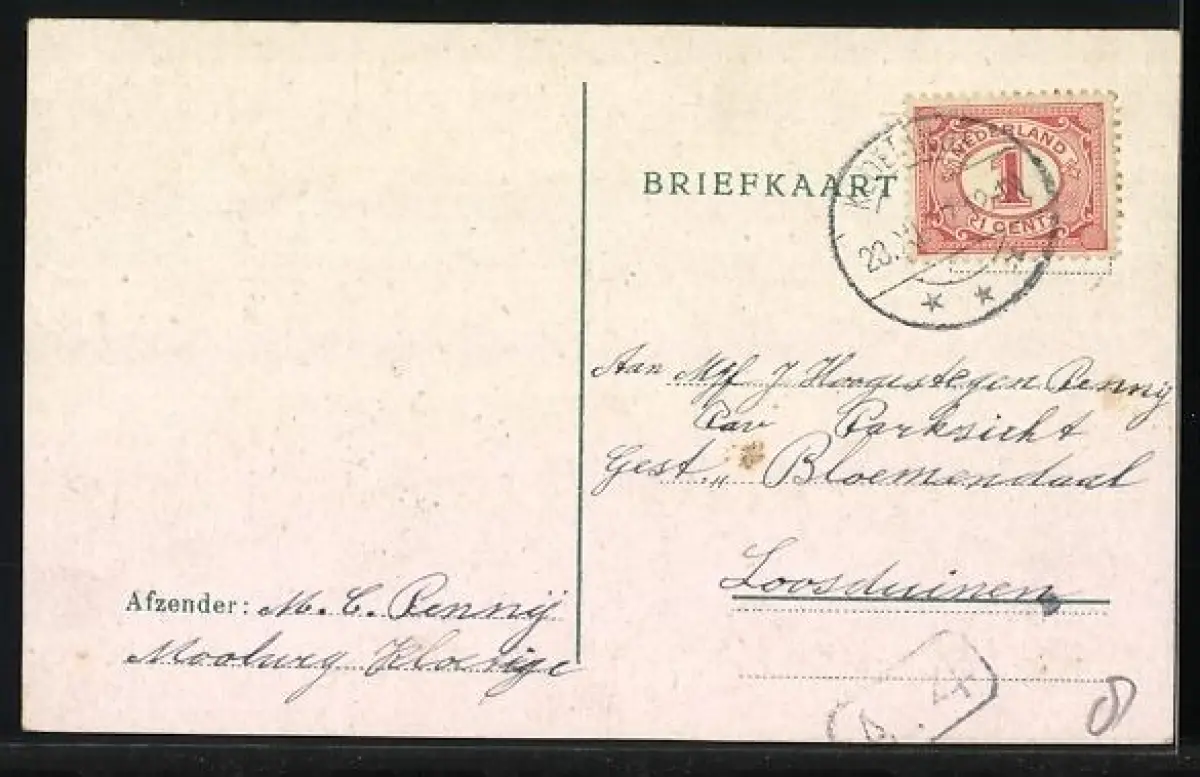 BRIEFKAART
NEDERLAND
1
CENT
23.
Aan J Hoogesteger Pennij
Pav Parkzicht
Gest. „ Bloemendaal
Loosduinen
Afzender: M. C. Pennij
8